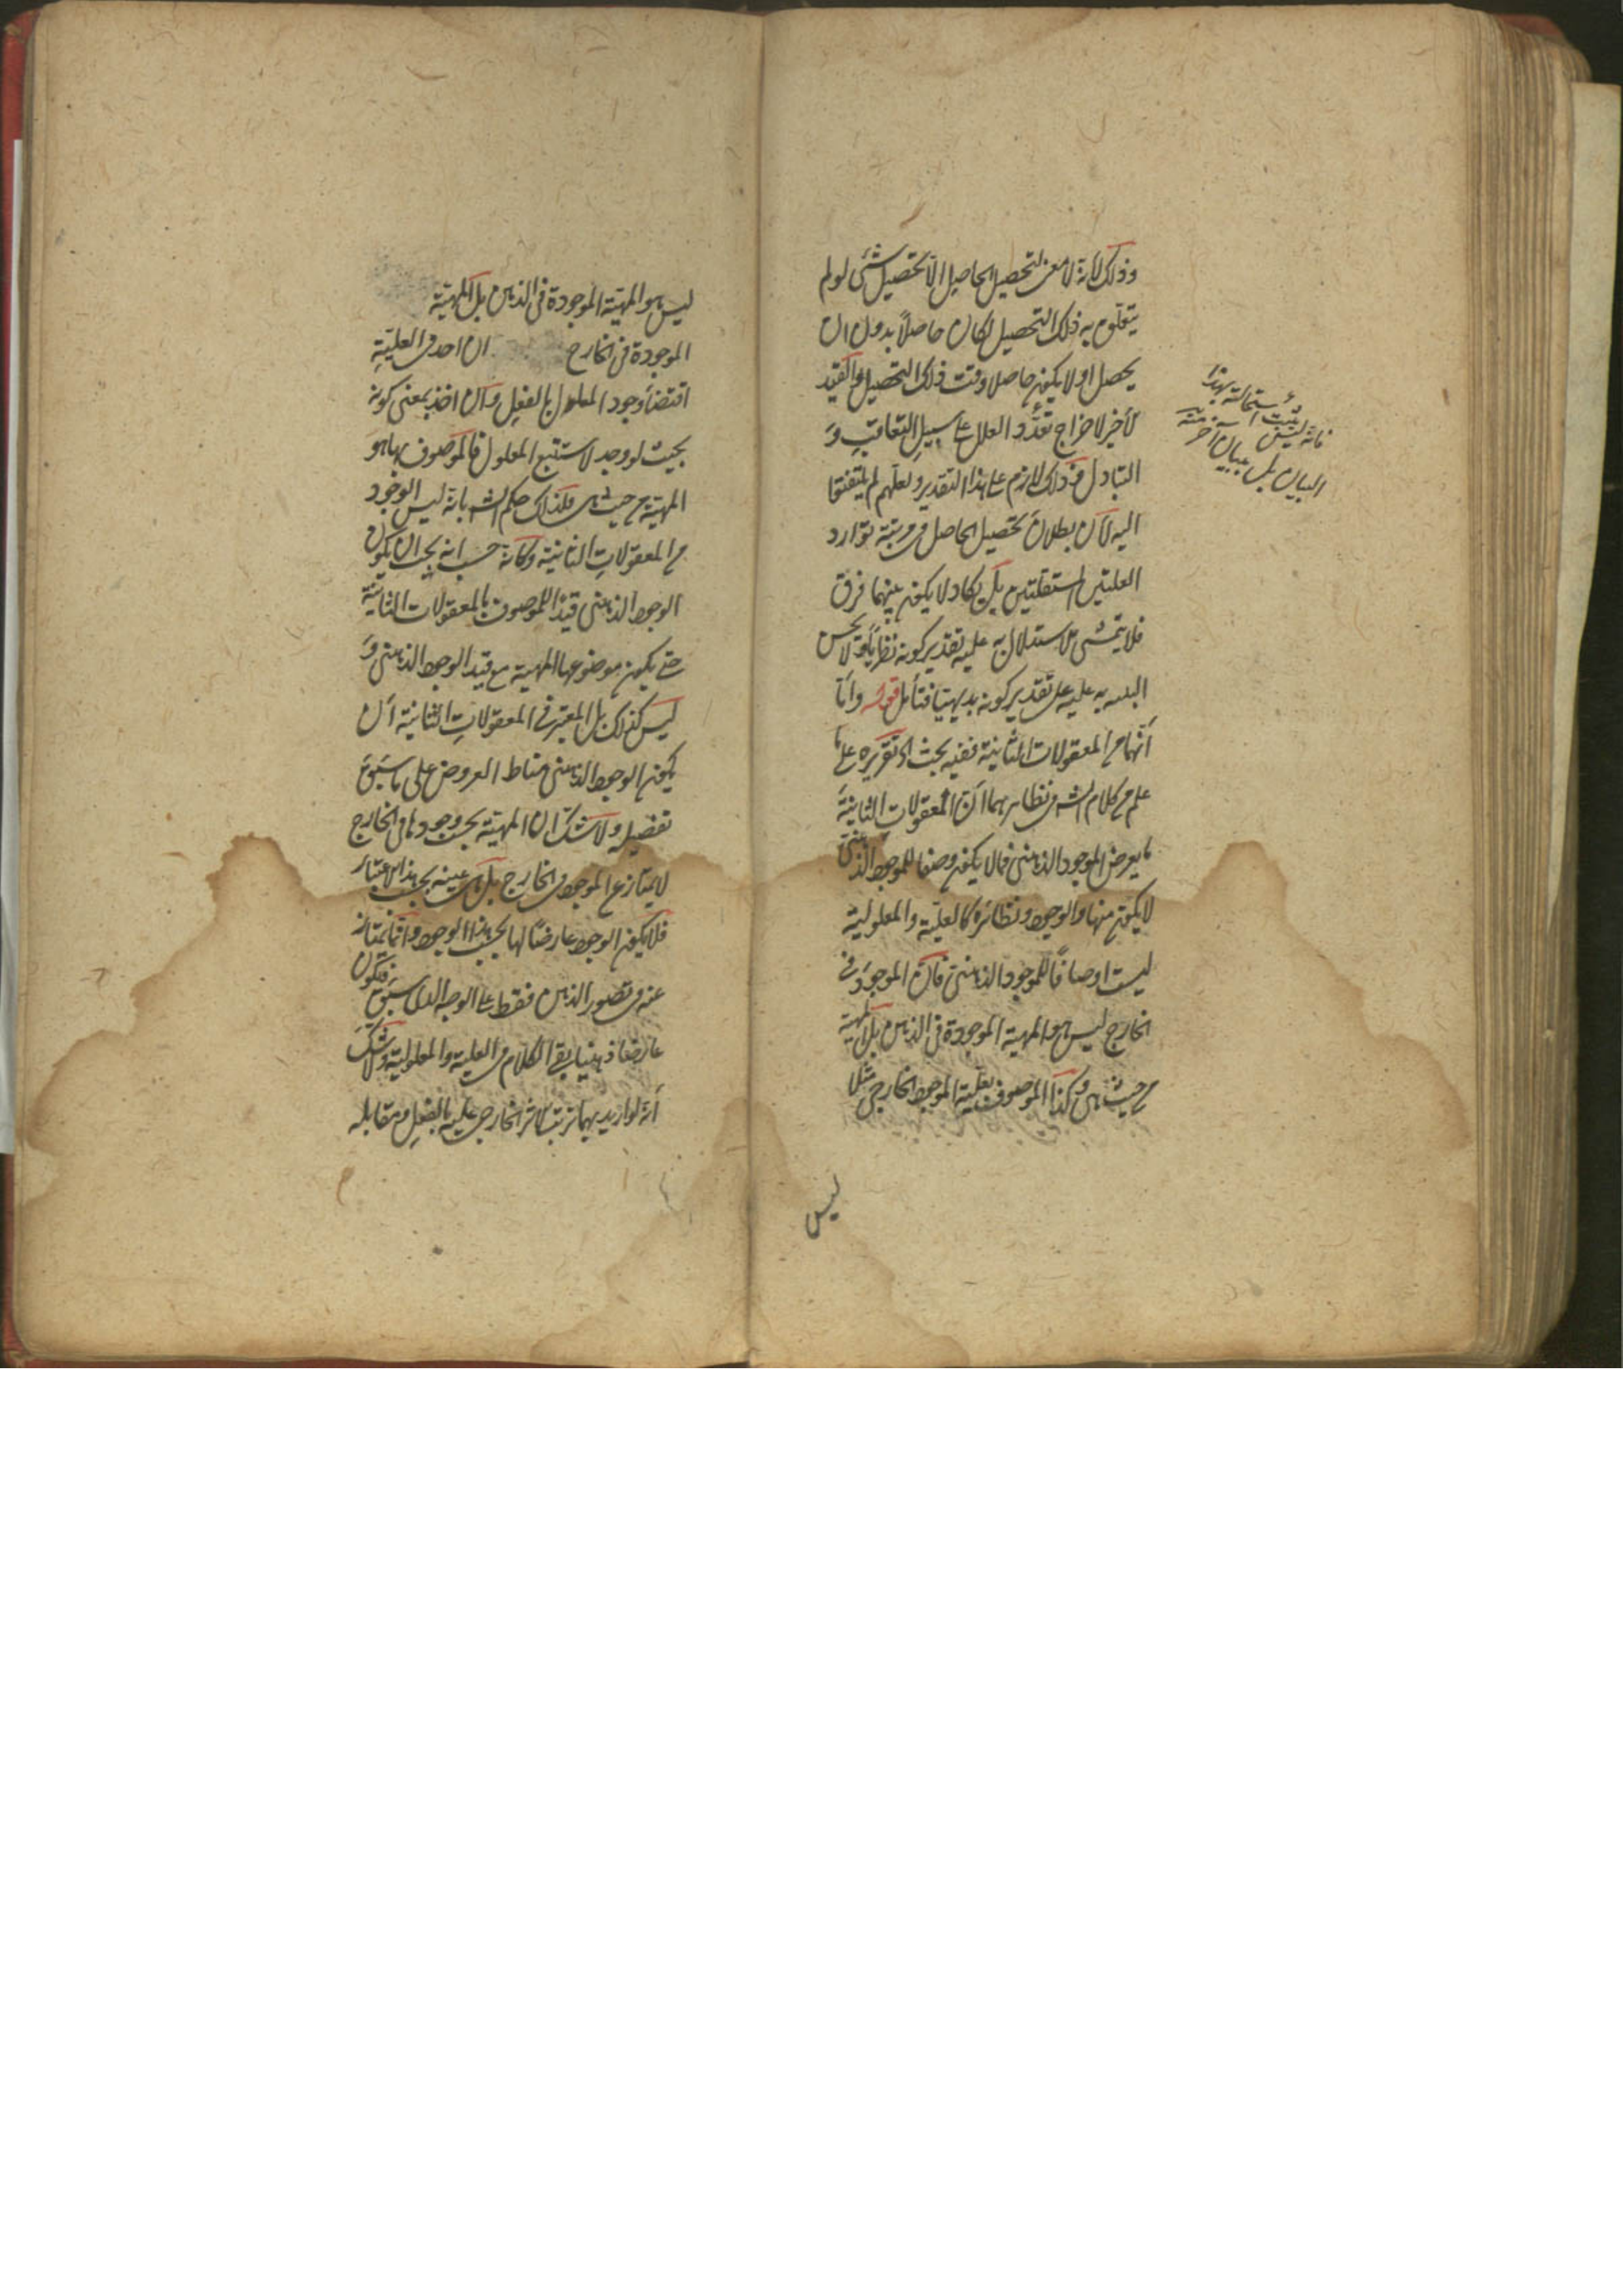 وذلك لانه لا معنى لتحصيل الحاصل الا تحصيل شئ لو لم
يتعلق به ذلك التحصيل لكان حاصلاً بدون ان
يحصل او لا يكون حاصلا وقت ذلك التحصيل والقيد
لأخير لاخراج تعدّد العلل على سبيل التعاقب و
التبادل فذلك لازم على هذا التقدير ولعلهم لم يلتفتوا
اليه لان بطلان تحصيل الحاصل في مرتبة توارد
العلتين المستقلتين بل يكاد لا يكون بينهما فرق
فلا يتمشى الاستدلال به عليه تقدير كونه نظريا ولا يحسن
عليه على تقدير كونه بديهيا فتأمل قوله واما
أنهما من المعقولات الثانية ففيه بحث اذ تقريره على ما
علم من كلام الش في نظايرهما ان المعقولات الثانية
ما يعرض الموجود الذهنى فما لا يكون وصفا للموجود الذهنى
لا يكون منها والوجود ونظائره كالعلية والمعلولية
ليست اوصافاً للموجود الذهنى فان الموجود فى
الخارج ليس هو المهية الموجودة فى الذهن بل المهية
من حيث هى وكذا الموصوف بعلية الموجود الخارجى مثلا
ليس
فانه ليس يثبت استحالته بهذا
البيان بل ببيان آخر منه
ليس هو المهية الموجودة فى الذهن بل المهية
الموجودة فى الخارج ان اخذ فى العلية
اقتضاء وجود المعلول بالفعل وان اخذ بمعنى كونه
بحيث لو وجد لاستتبع المعلول فالموصوف بها هو
المهية من حيث هى فلذلك حكم الش بانه ليس الوجود
من المعقولات الثانية وكانه حسب انه يجب ان يكون
الوجود الذهنى قيدا للموصوف بالمعقولات الثانية
حتى يكون موضوعها المهية مع قيد الوجود الذهنى و
ليس كذلك بل المعتبر فى المعقولات الثانية أن
يكون الوجود الذهنى مناط العروض على ما سبق
تفضيله ولا شك ان المهية بحسب وجودها فى الخارج
لا يمتاز عن الموجود فى الخارج بل هى عينه بحسب هذا الاعتبار
فلا يكون الوجود عارضا لها بحسب هذا الوجود وانما يمتاز
عنه فى تصور الذهن فقط على الوجه الذى سبق فيكون
عارضا ذهنيا بقى الكلام فى العلية والمعلولية ولا شك
أنه لو اريد بهما ترتب الاثر الخارجى عليه بالفعل ومقابله